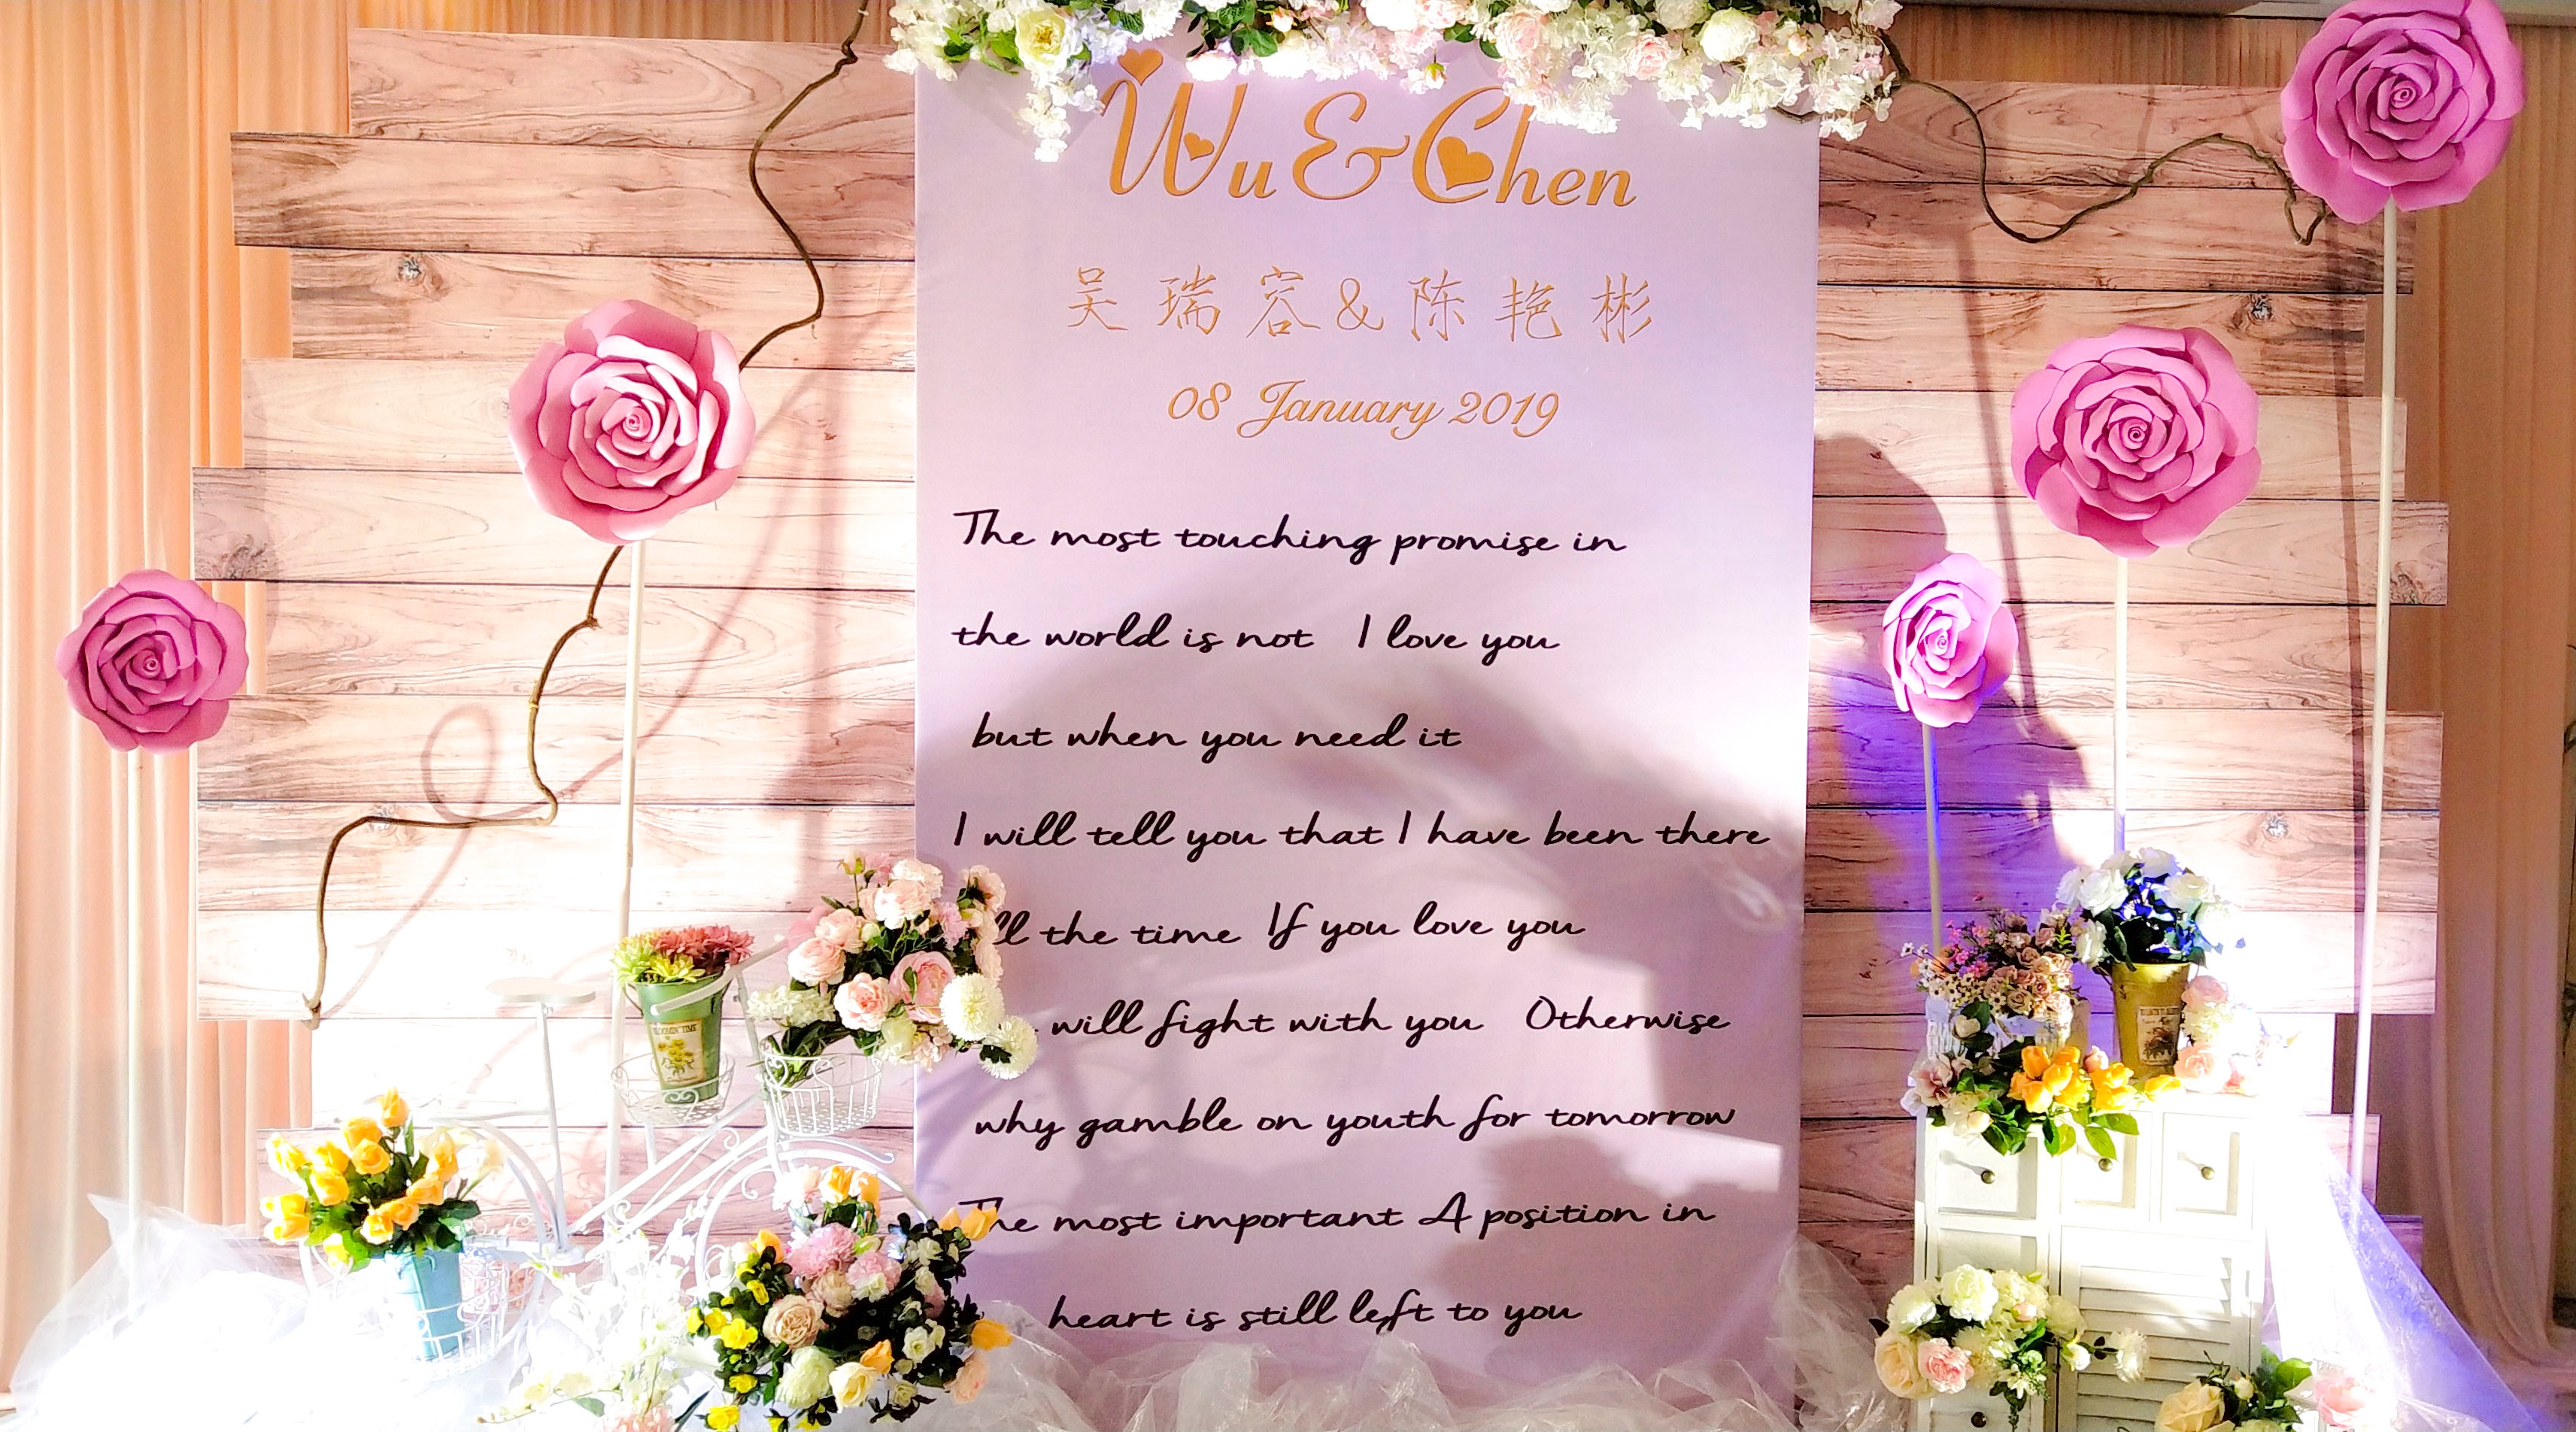 Wu & Chen
吴瑞容&陈艳彬
08 January 2019
The most touching promise in
the world is not I love you
but when you need it
I will tell you that I have been there
the time If you love you
will fight with you Otherwise
why gamble on youth for tomorrow
The most important A position in
heart is still left to you